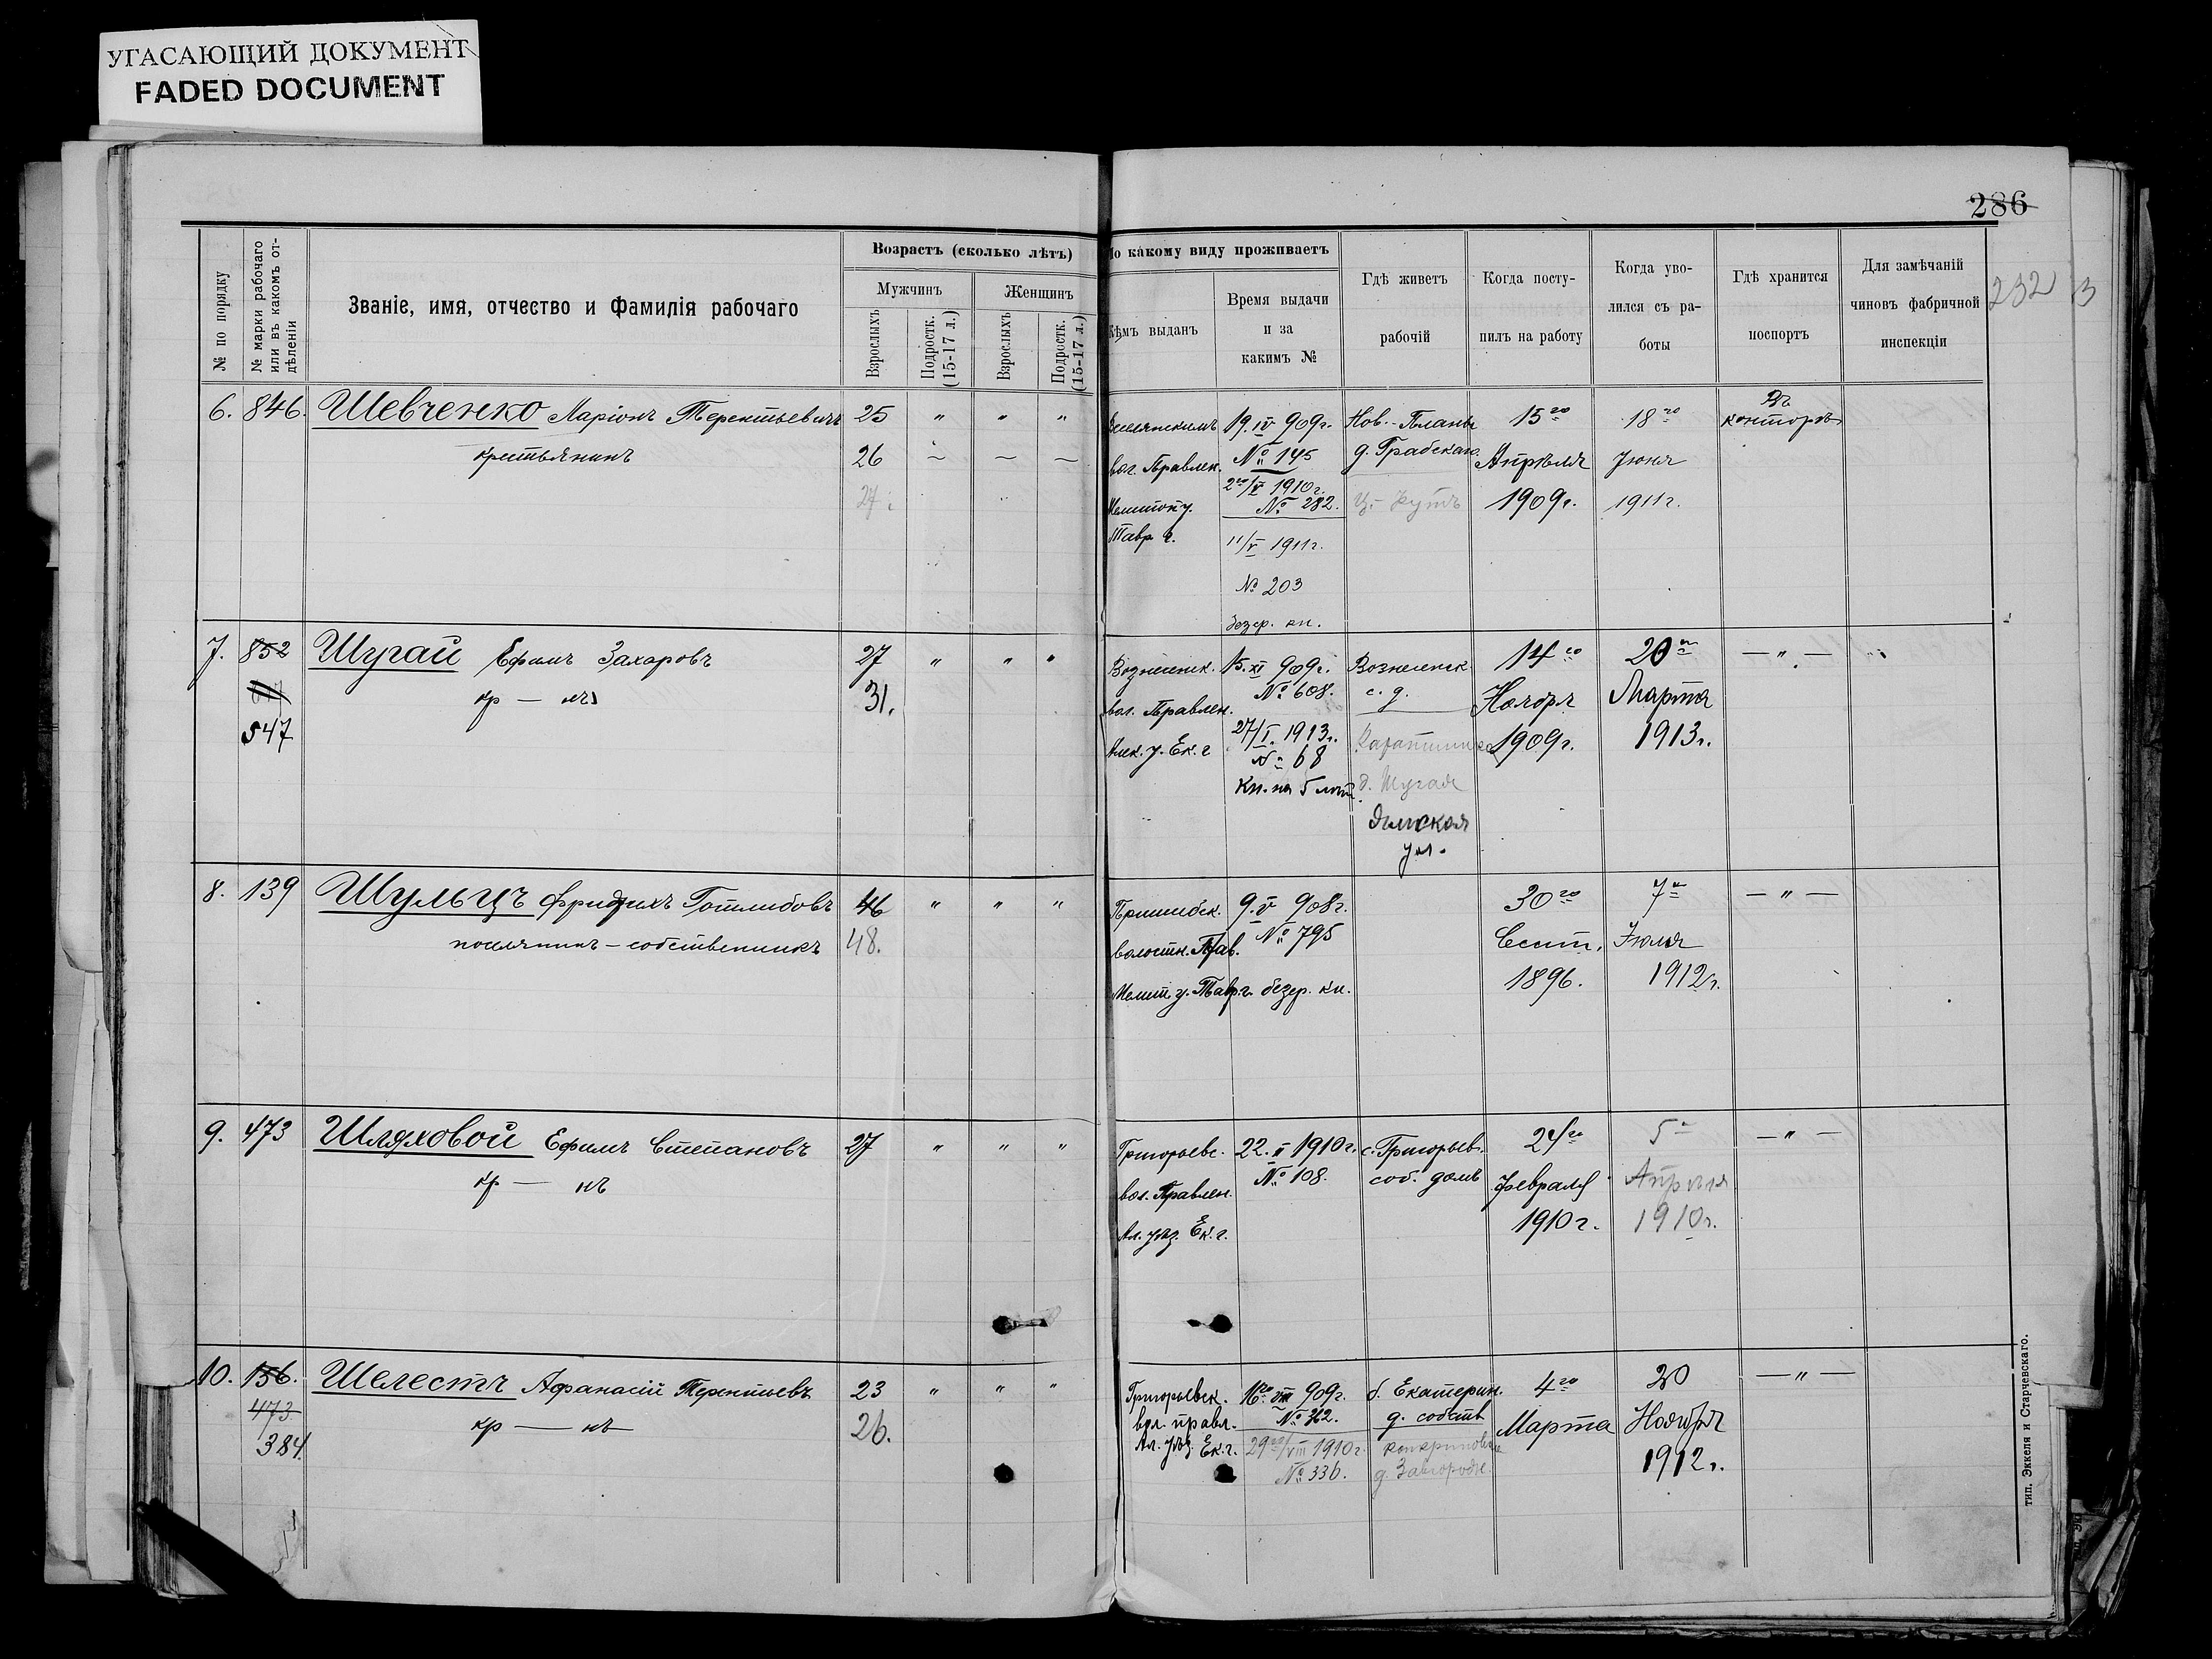 УГАСАЮЩИЙ ДОКУМЕНТ
FADED DOCUMENT
286
232
3
№ по порядку
№ марки рабочаго
или въ какомъ от-
дѣленіи
Званіе, имя, отчество и фамилія рабочаго
Возрастъ (сколько лѣтъ)
Мужчинъ
Женщинъ
Взрослыхъ
Подростк.
(15-17 л.)
Взрослыхъ
Подростк.
(15-17 л.)
По какому виду проживаетъ
Кѣмъ выданъ
Время выдачи
и за
какимъ №
Гдѣ живетъ
рабочій
Когда посту-
пилъ на работу
Когда уво-
лился съ ра-
боты
Гдѣ хранится
поспортъ
Для замѣчаній
чиновъ фабричной
инспекціи
6. 846. Шевченко Маріонъ Терентьевичъ 25 " " "
крестьянинъ 26 ~ ~ ~
27.
вол. Правлен.
Мелитоп. у.
Тавр. г.
19.IV 909г.
№ 145
2го/V 1910г.
№ 282.
11/V 1911г.
№ 203
безср. кн.
Нов.-Планы
д. Грабскаго
15го
Апрѣля
1909г.
18го
Іюня
1911г.
Въ
конторѣ
7. 852 Шугай Ефимъ Захаровъ 27 " " "
547
кр — нъ 31.
Вознесенск.
вол. Правлен.
Алек. у. Ек. г
15.XI 909г.
№ 608.
27/I. 1913г.
№ 68
Кн. на 5 лѣт.
Вознесенск.
с. д.
д. Шугая
Ямская
ул.
14го
Ноября
1909г.
20го
Марта
1913г.
— " —
8. 139 Шульцъ Фридрихъ Готлибовъ 46 " " "
поселянинъ-собственникъ 48.
Пришибск.
волостн. Прав.
Мелит. у. Тавр. г.
9.V 908г.
№ 795
безср. кн.
30го
Сент.
1896.
7го
Іюля
1912г.
— " —
9. 473 Шляховой Ефимъ Степановъ 27 " " "
кр — нъ
Григорьевс.
вол. Правлен.
Ал. уѣз. Ек. г.
22.II 1910г.
№ 108.
с. Григорьев.
соб. домъ
24го
Февраля
1910г.
5го
Апрѣля
1910г.
— " —
10. 156. Шелестъ Афанасій Терентьевъ 23 " " "
473
384.
кр — нъ 26.
Григорьевск.
вол. правл.
Ал. уѣз. Ек. г.
16го VIII 909г.
№ 362.
29го/VIII 1910г.
№ 336.
б. Екатерин.
д. собств
д. Завгородн.
4го
Марта
20
Ноября
1912г.
— " —
тип. Эккеля и Старчевскаго.